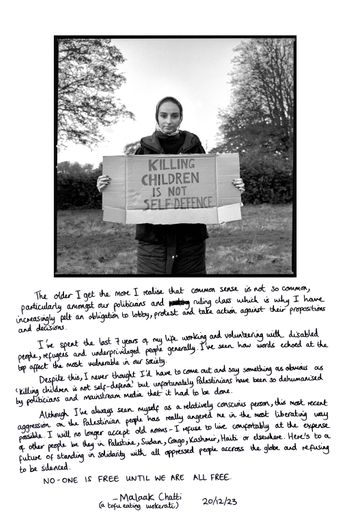 KILLING
CHILDREN
IS NOT
SELF-DEFENCE
The older I get the more I realise that common sense is not so common,
particularly amongst our politicians and ruling class which is why I have
increasingly felt an obligation to lobby, protest and take action against their propositions
and decisions.
I've spent the last 7 years of my life working and volunteering with disabled
people, refugees and underprivileged people generally. I've seen how words echoed at the
top affect the most vulnerable in our society.
Despite this, I never thought I'd have to come out and say something as obvious as
'killing children is not self-defence' but unfortunately Palestinians have been so dehumanised
by politicians and mainstream media that it had to be done.
Although I've always seen myself as a relatively conscious person, this most recent
aggression on the Palestinian people has really angered me in the most liberating way
possible. I will no longer accept old norms - I refuse to live comfortably at the expense
of other people be they in Palestine, Sudan, Congo, Kashmir, Haiti or elsewhere. Here's to a
future of standing in solidarity with all oppressed people accross the globe and refusing
to be silenced.
NO-ONE IS FREE UNTIL WE ARE ALL FREE.
- Malaak Chatti
(a tofu eating wokerati)
20/12/23